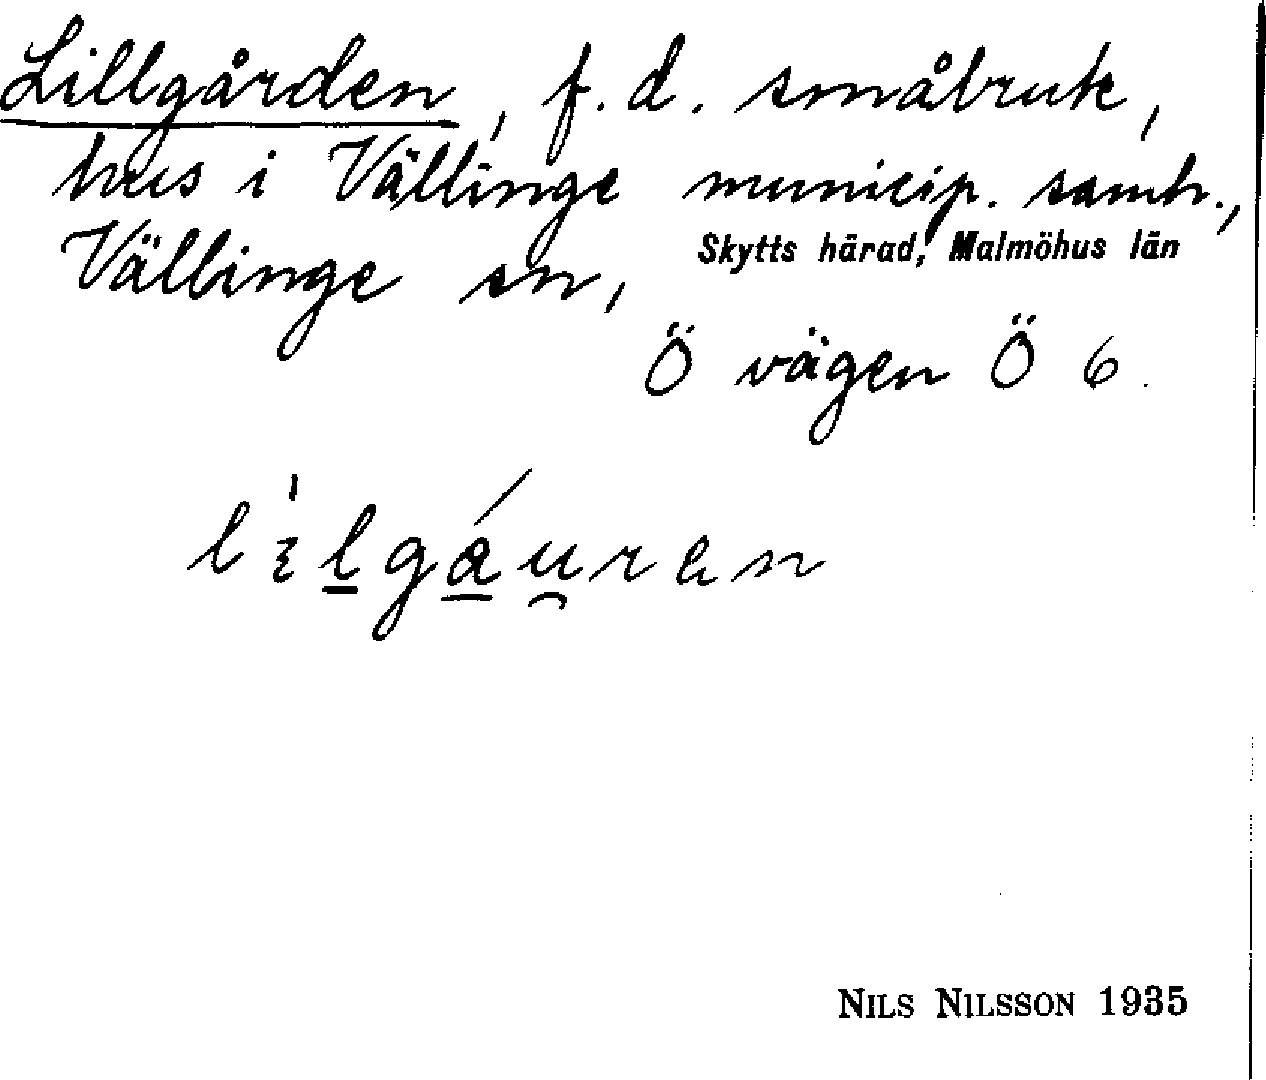 Lillgården, f.d. småbruk,
hus i Vällinge municip. samh.,
Vällinge sn, Skytts härad, Malmöhus län
Ö vägen Ö 6.
NILS NILSSON 1935